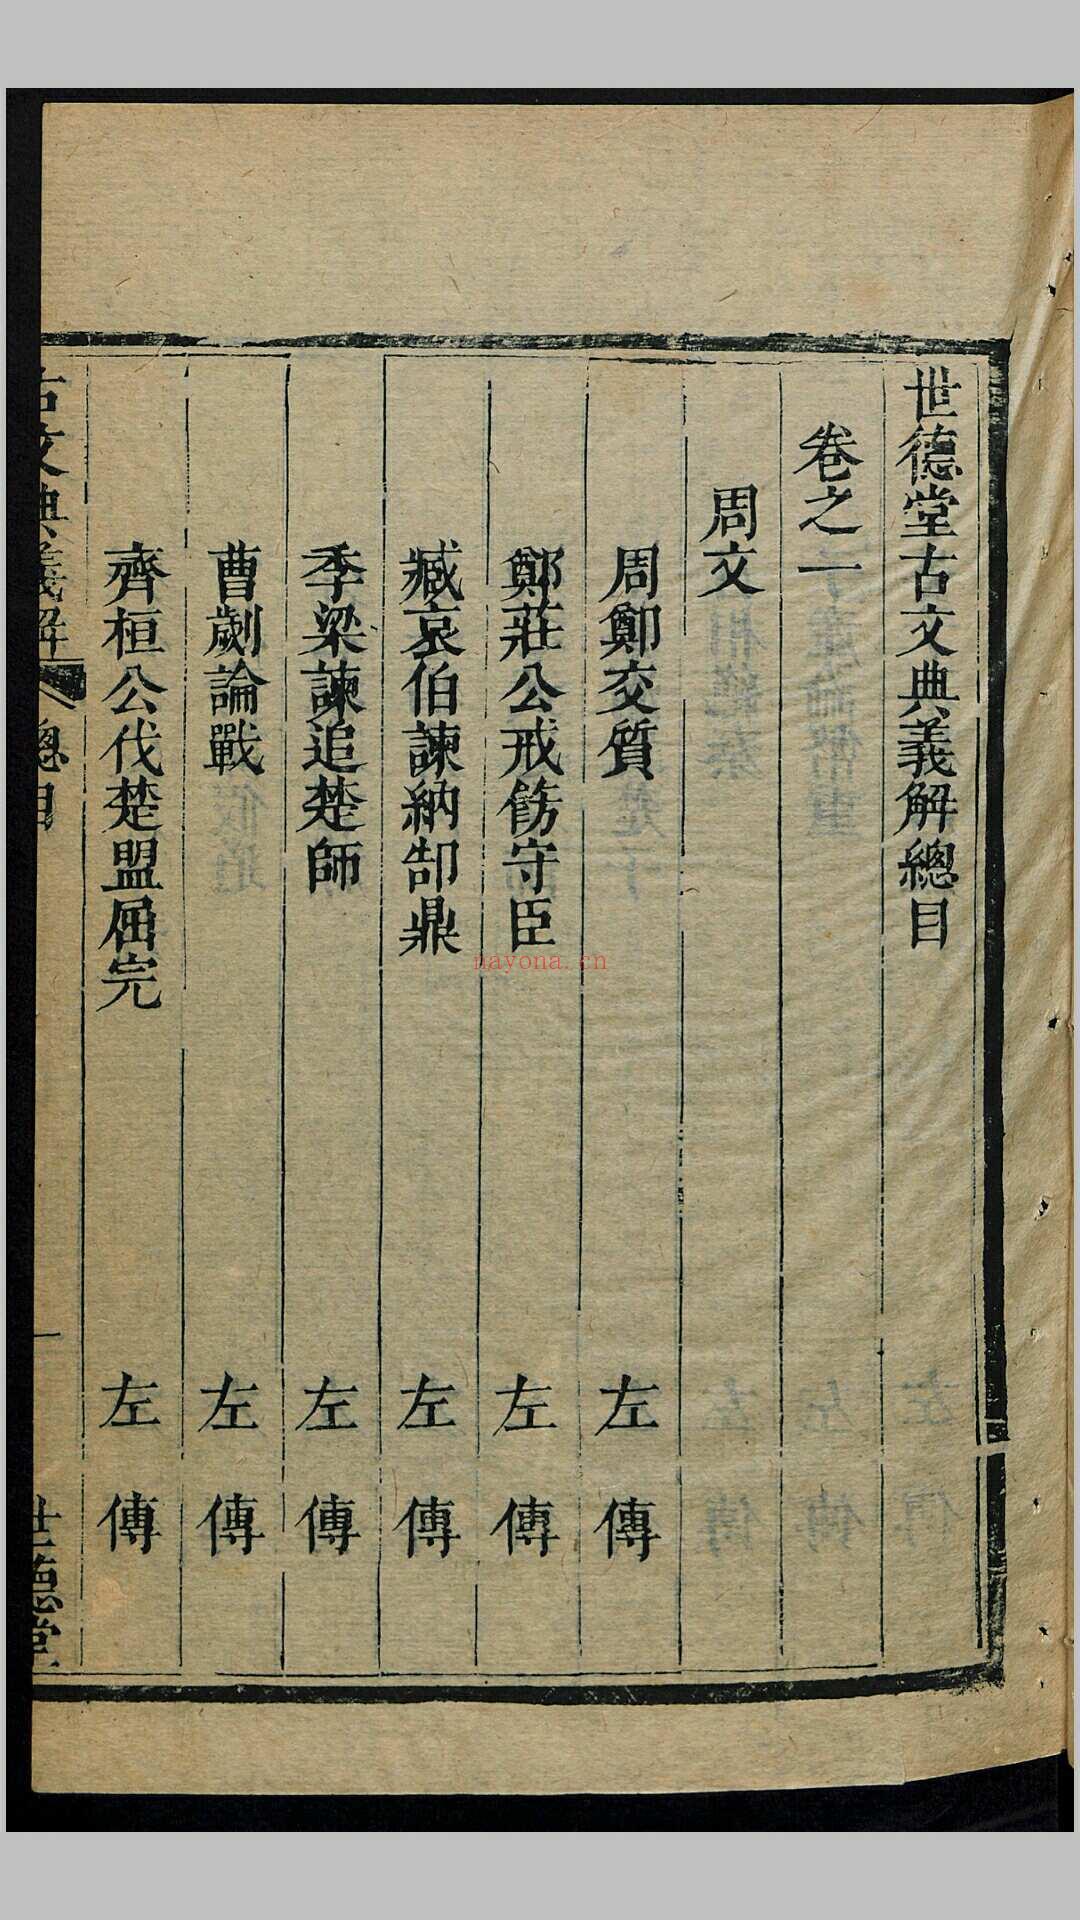 世德堂古文典義解總目
卷之一
周文
周鄭交質 左傳
鄭莊公戒飭守臣 左傳
臧哀伯諫納郜鼎 左傳
季梁諫追楚師 左傳
曹劌論戰 左傳
齊桓公伐楚盟屈完 左傳
古文典義解 總目 一 世德堂
nayona.cn